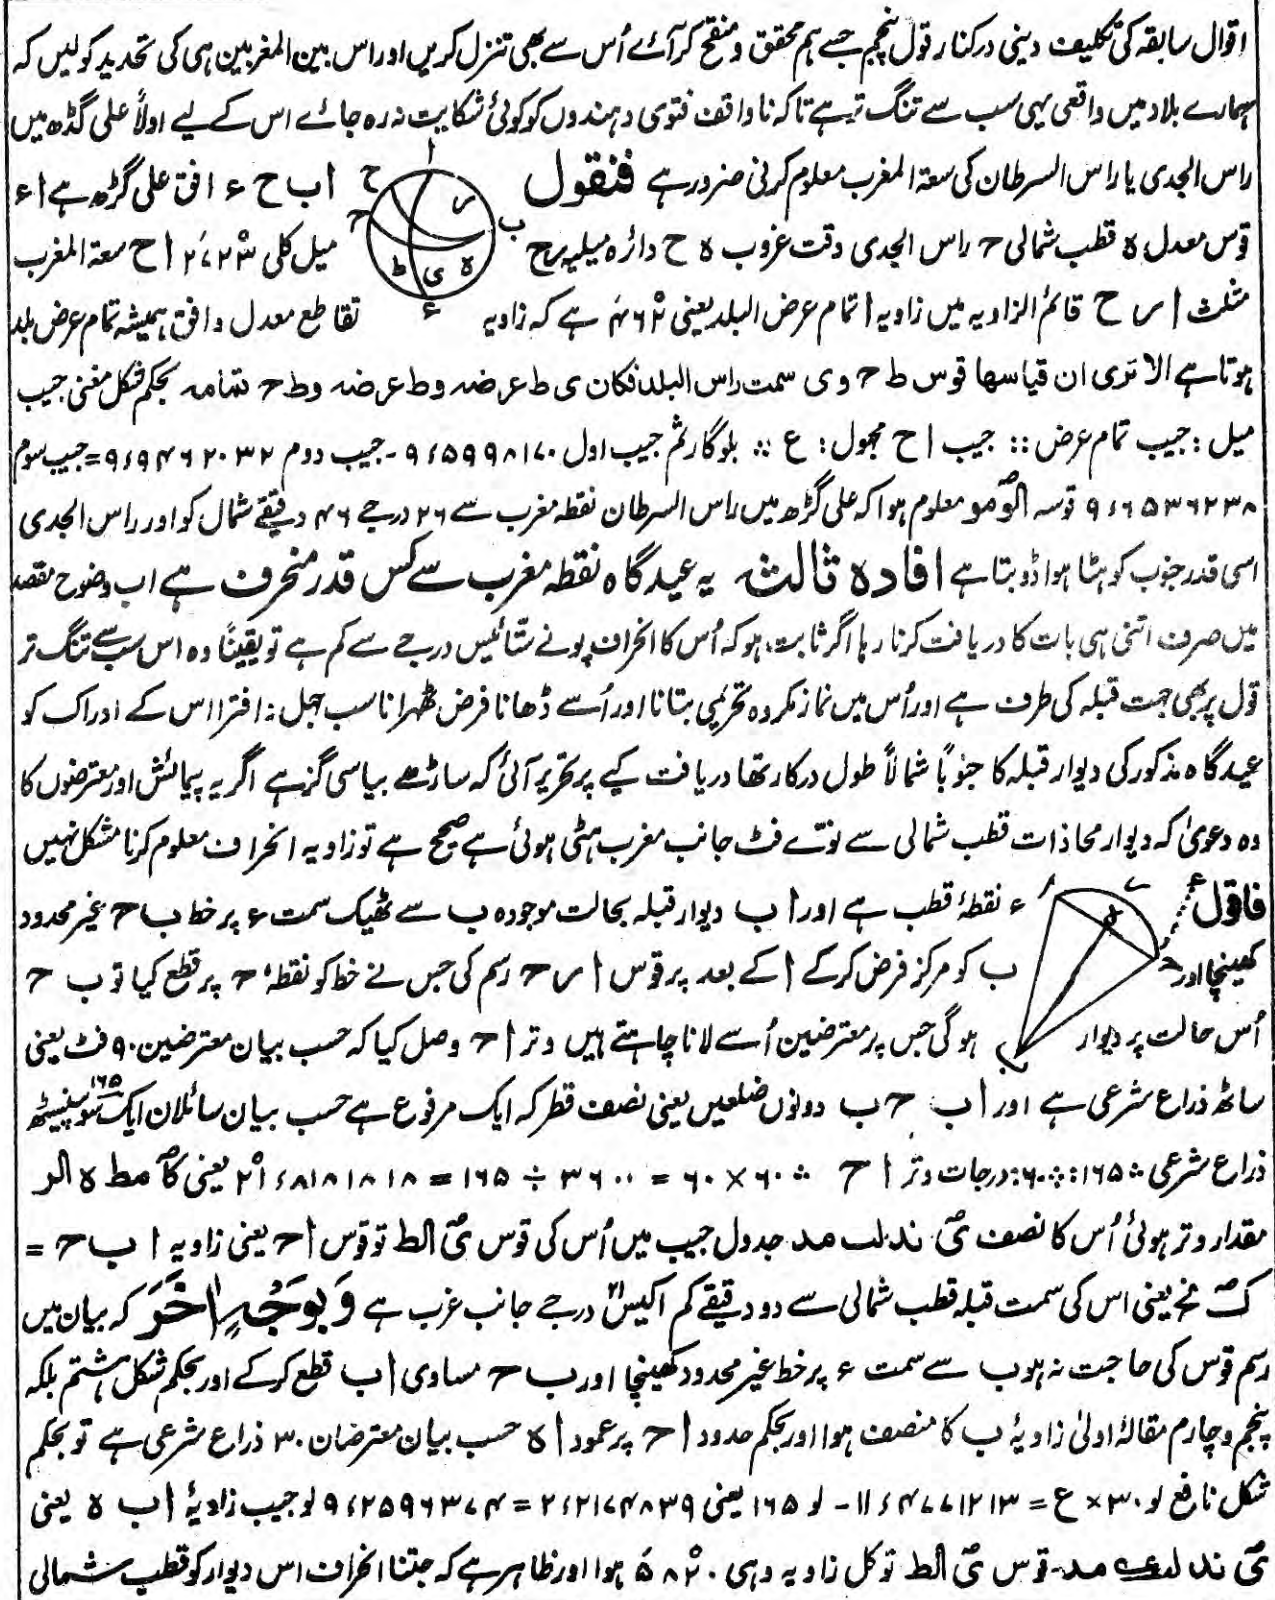 اقوال سابقہ کی تکلیف دینی درکنار قول پنجم جسے ہم محقق و منقح کر آئے اُس سے بھی تنزل کریں اور اس بین المغربین ہی کی تحدید کو لیں کہ
ہمارے بلاد میں واقعی یہی سب سے تنگ تر ہے تاکہ ناواقف فتوی دہندوں کو کوئی شکایت نہ رہ جائے اس کے لیے اولاً علی گڈھ میں
راس الجدی یا راس السرطان کی سعۃ المغرب معلوم کرنی ضرور ہے فنقول ا ب ح ء افق علی گڑھ ہے ا ء
قوس معدل ہ قطب شمالی ح راس الجدی وقت غروب ہ ح دائرہ میلیہ میل کلی ا ح سعۃ المغرب
مثلث ا ر ح قائم الزاویہ میں زاویہ ا تمام عرض البلد یعنی ہے کہ زاویہ تقاطع معدل و افق ہمیشہ تمام عرض بلد
ہوتا ہے الا تری ان قیاسھا قوس ط ح و ی سمت راس البلد فکان ی ط عرضہ و ط ح تمامہ بحکم شکل مغنی جیب
میل : جیب تمام عرض :: جیب ا ح مجہول : ع ∴ بلوگارثم جیب اول ۹٫۵۹۹۸۱۷۰ - جیب دوم ۹٫۹۴۶۲۰۳۲ = جیب سوم
۹٫۶۵۳۶۲۳۸ قوسہ معلوم ہوا کہ علی گڑھ میں راس السرطان نقطہ مغرب سے ۲۶ درجے ۴۶ دقیقے شمال کو اور راس الجدی
اسی قدر جنوب کو ہٹا ہوا ڈوبتا ہے افادہ ثالث یہ عیدگاہ نقطہ مغرب سے کس قدر منحرف ہے اب وضوح مقصد
میں صرف اتنی ہی بات کا دریافت کرنا رہا اگر ثابت ہو کہ اُس کا انحراف پونے ستّائیس درجے سے کم ہے تو یقیناً وہ اس سب سے تنگ تر
قول پر بھی جہت قبلہ کی طرف ہے اور اُس میں نماز مکروہ تحریمی بتانا اور اُسے ڈھانا فرض ٹھہرانا سب جہل و افترا اس کے ادراک کو
عیدگاہ مذکور کی دیوار قبلہ کا جنوباً شمالاً طول درکار تھا دریافت کیے پر تحریر آئی کہ ساڑھے بیاسی گز ہے اگر یہ پیمائش اور معترضوں کا
وہ دعویٰ کہ دیوار محاذات قطب شمالی سے نوّے فٹ جانب مغرب ہٹی ہوئی ہے صحیح ہے تو زاویہ انحراف معلوم کرنا مشکل نہیں
فاقول ء نقطۂ قطب ہے اور ا ب دیوار قبلہ بحالت موجودہ ب سے ٹھیک سمت ء پر خط ب ح غیر محدود
کھینچا اور ب کو مرکز فرض کرکے ا کے بعد پر قوس ا ر ح رسم کی جس نے خط کو نقطۂ ح پر قطع کیا تو ب ح
اُس حالت پر دیوار ہوگی جس پر معترضین اُسے لانا چاہتے ہیں وتر ا ح وصل کیا کہ حسب بیان معترضین ۹۰ فٹ یعنی
ساٹھ ذراع شرعی ہے اور ا ب ح ب دونوں ضلعیں یعنی نصف قطر کہ ایک مرفوع ہے حسب بیان سائلان ایک سو پینسٹھ ۱۶۵
ذراع شرعی ∴ ۱۶۵ : ۶۰ :: ۶۰ : درجات وتر ا ح ∴ ۶۰ × ۶۰ = ۳۶۰۰ ÷ ۱۶۵ = ۲۱٫۸۱۸۱۸۱۸ یعنی
مقدار وتر ہوئی اُس کا نصف جدول جیب میں اُس کی قوس تو قوس ا ح یعنی زاویہ ا ب ح =
یعنی اس کی سمت قبلہ قطب شمالی سے دو دقیقے کم اکیس درجے جانب غرب ہے وَبِوَجْہٍ اٰخَرَ کہ بیان میں
رسم قوس کی حاجت نہ ہو ب سے سمت ء پر خط غیر محدود کھینچا اور ب ح مساوی ا ب قطع کرکے اور بحکم شکل ہشتم بلکہ
پنجم و چارم مقالۂ اولیٰ زاویۂ ب کا منصف ہوا اور بحکم حدود ا ح پر عمود ا ہ حسب بیان معترضان ۳۰ ذراع شرعی ہے تو بحکم
شکل نافع لو ۳۰ × ع = ۱۱٫۴۷۷۱۲۱۳ - لو ۱۶۵ یعنی ۲٫۲۱۷۴۸۳۹ = ۹٫۲۵۹۶۳۷۴ لو جیب زاویۂ ا ب ہ یعنی
قوس تو کل زاویہ وہی ہوا اور ظاہر ہے کہ جتنا انحراف اس دیوار کو قطب شمالی